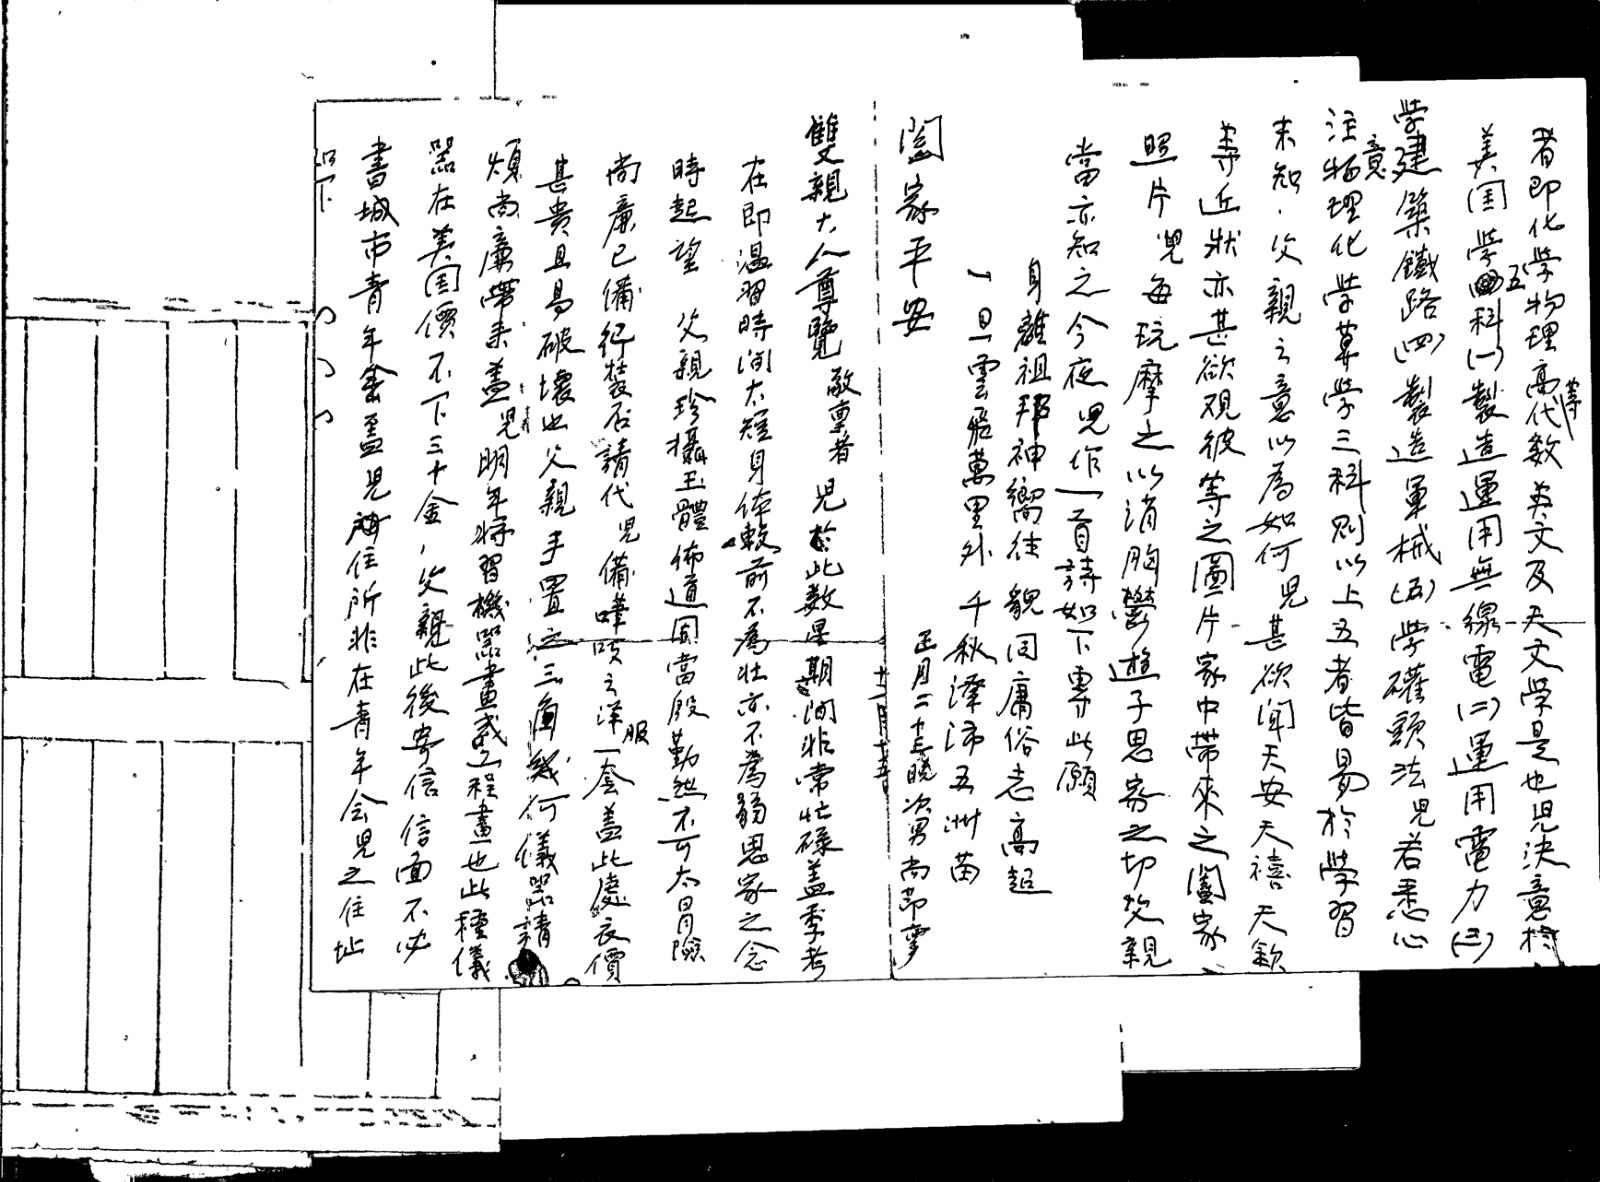 者即化学物理高等代数英文及天文学是也兒決意於
美国学五科(一)製造運用無線電(二)運用電力(三)
学建築鐵路(四)製造軍械(五)学礦
法兒若悉心
注意物理化学算学三科則以上五者皆易於学習
未知父親之意以為如何兒甚欲闻天安天禧天欽
等近狀亦甚欲观彼等之圖片家中帶來之闔家
照片兒每玩摩之以消胸鬱遊子思家之切父親
當亦知之今夜兒作一首詩如下專此願
身離祖邦神嚮往貌同庸俗志高超
一旦雲飛萬里外千秋澤沛五洲苗
闔家平安
正月二十三晚次男尚節
十一月十五
雙親大人尊覽敬稟者兒於此数星期间非常忙碌盖季考
在即温習時间太短身体較前不為壮亦不為弱思家之念
時起望父親珍攝玉體佈道固當殷勤然不可太冒險
尚廉已備行裝否請代兒備嗶吱之洋服一套盖此處衣價
甚貴且易破壞也父親手置之三角幾何儀器請
煩尚廉帶来盖兒明年将習機器畫或工程畫也此種儀
器在美国價不下三十金父親此後寄信信面不必
書城市青年会盖兒住所非在青年会兒之住址
如下